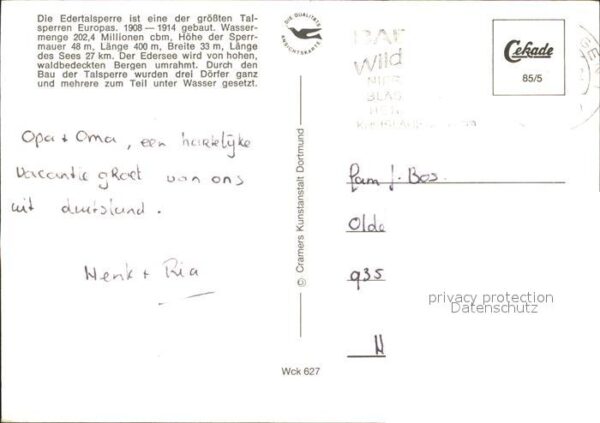 Die Edertalsperre ist eine der größten Tal-
sperren Europas. 1908 — 1914 gebaut. Wasser-
menge 202,4 Millionen cbm, Höhe der Sperr-
mauer 48 m, Länge 400 m, Breite 33 m, Länge
des Sees 27 km. Der Edersee wird von hohen,
waldbedeckten Bergen umrahmt. Durch den
Bau der Talsperre wurden drei Dörfer ganz
und mehrere zum Teil unter Wasser gesetzt.
Opa + Oma, een hartelijke
vacantie groet van ons
uit duitsland.
Henk + Ria
DIE QUALITÄTS
ANSICHTSKARTE
© Cramers Kunstanstalt Dortmund
Wck 627
BAD
Wild
Cekade
85/5
fam J. Bos.
Olde
935
N
privacy protection
Datenschutz